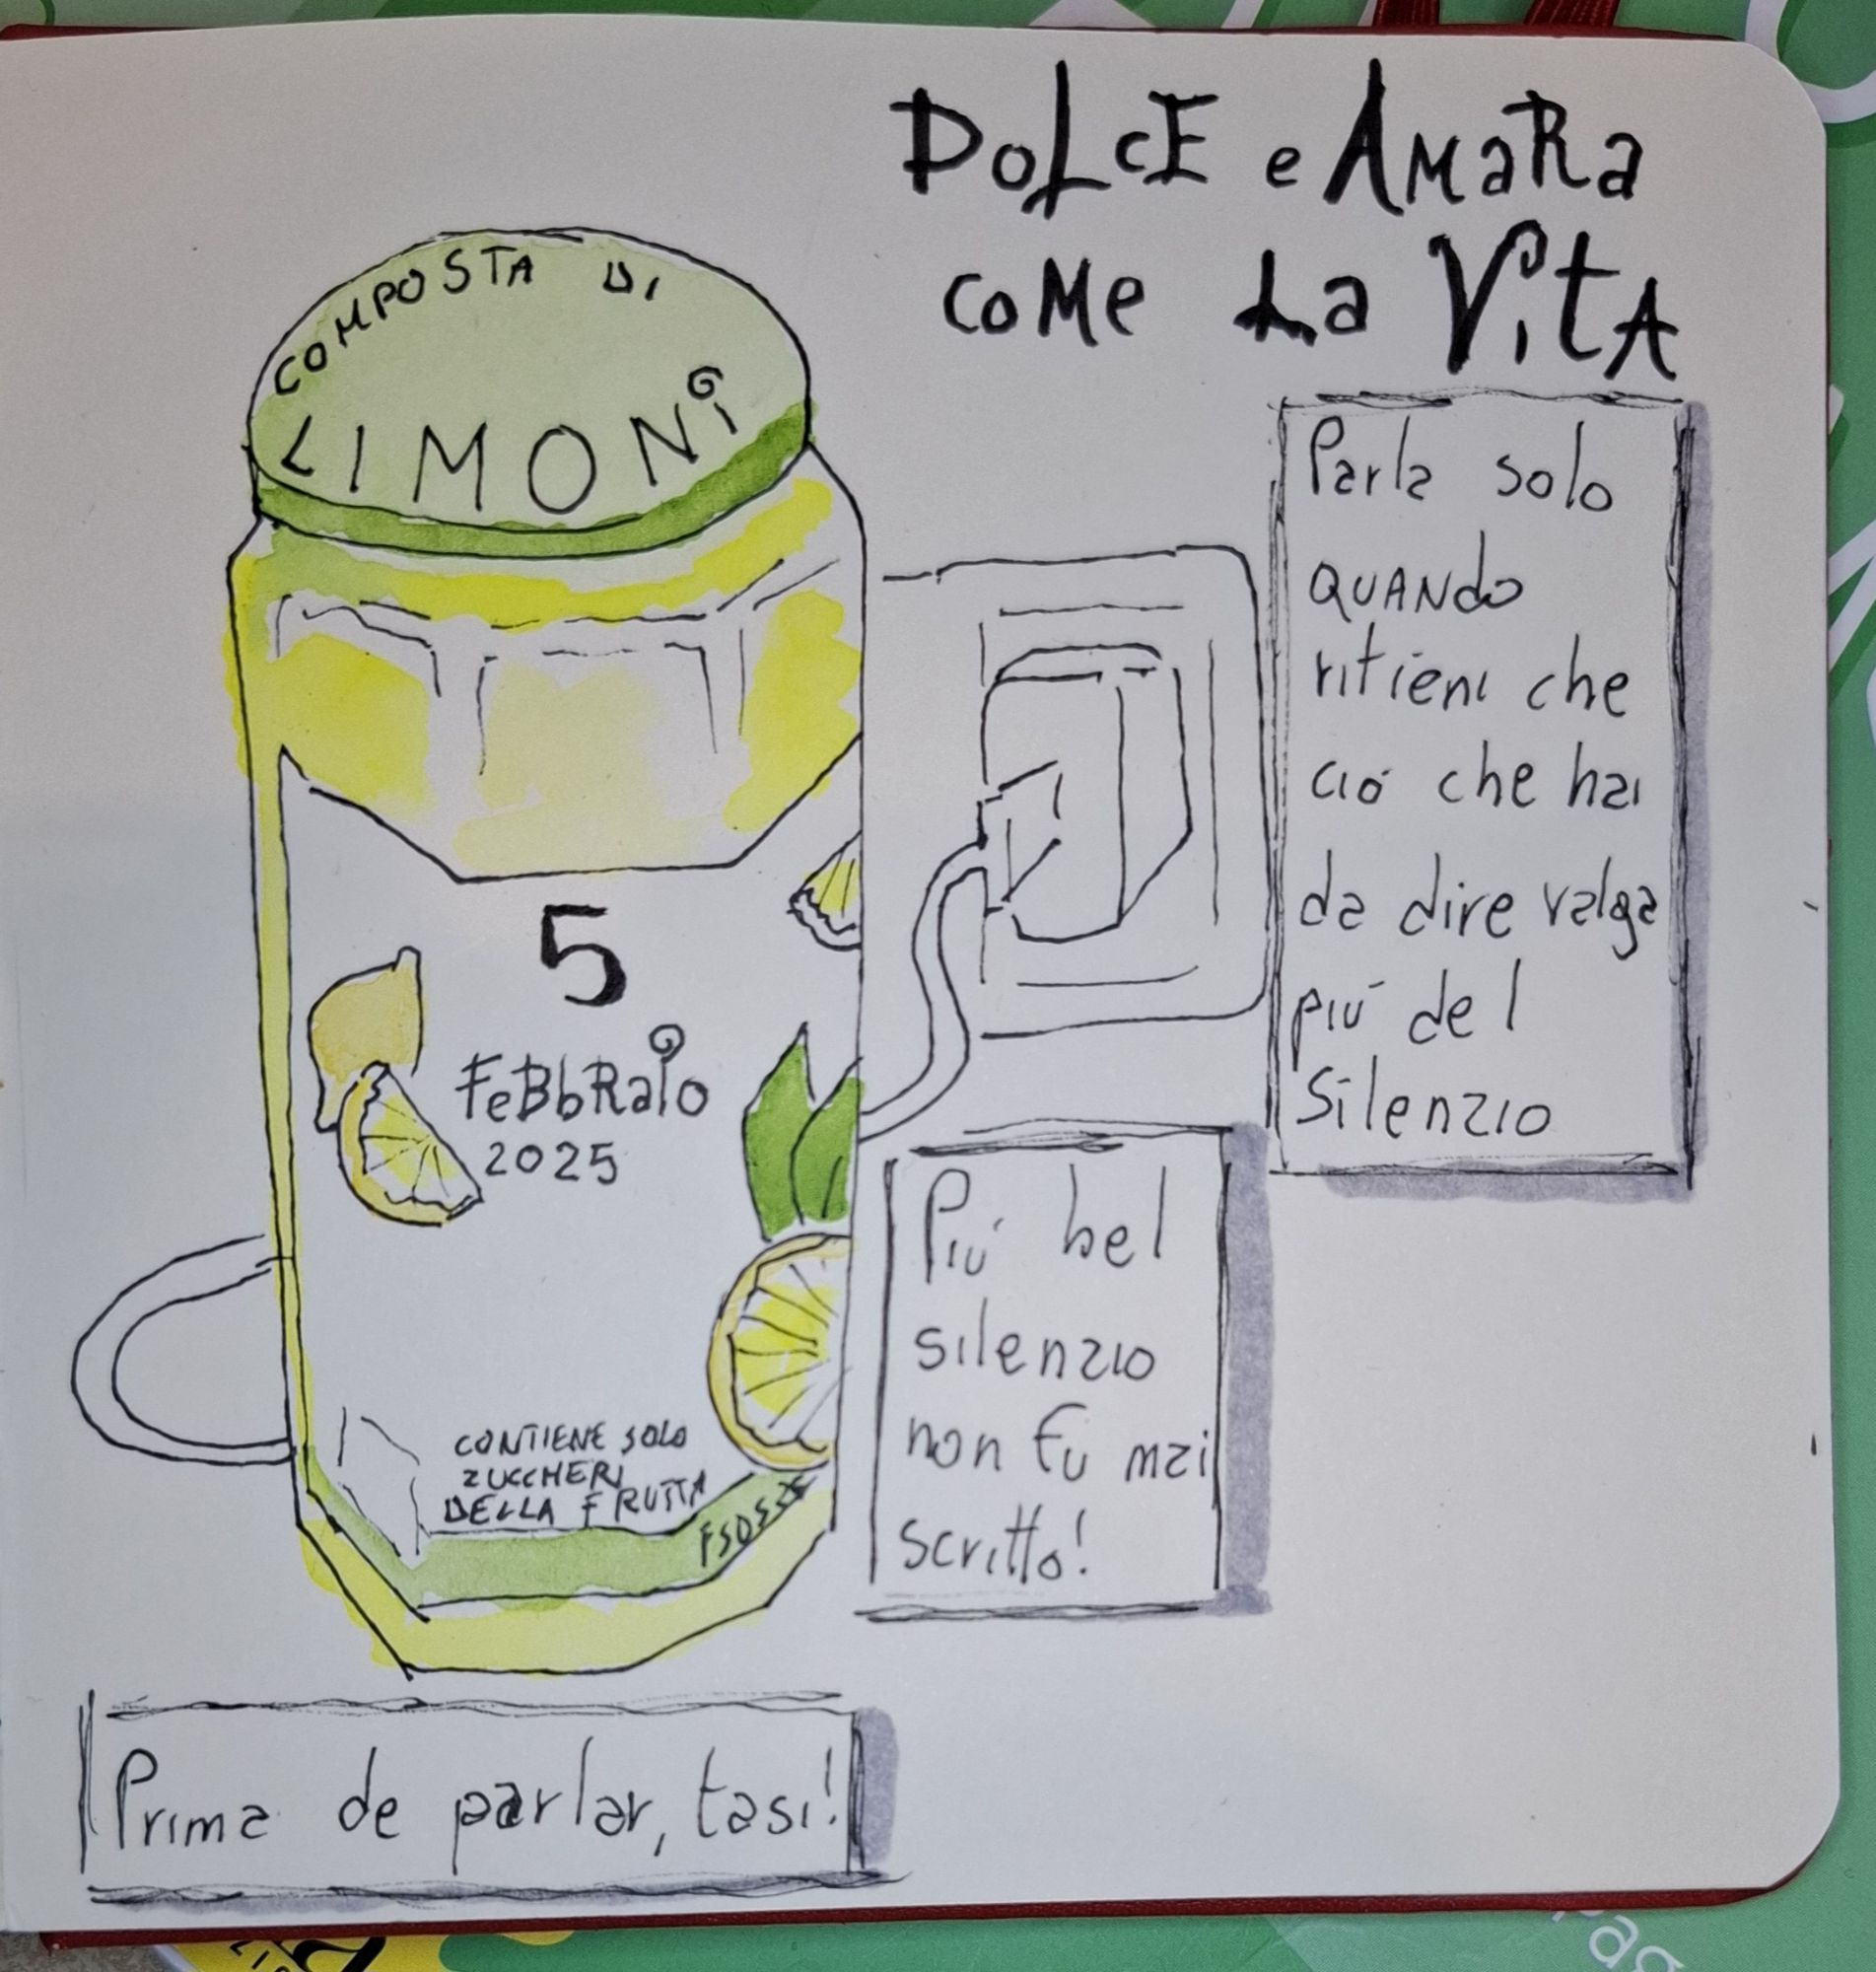 DoLcE e AMaRa
coMe La VitA
COMPOSTA DI
LIMONi
Parla solo
QUANdo
ritieni che
ció che hai
da dire valga
piú del
Silenzio
5
FeBbRaio
2025
CONTIENE SOLO
ZUCCHERI
DELLA FRUTTA
Piú bel
silenzio
non fu mai
scritto!
Prima de parlar, tasi!